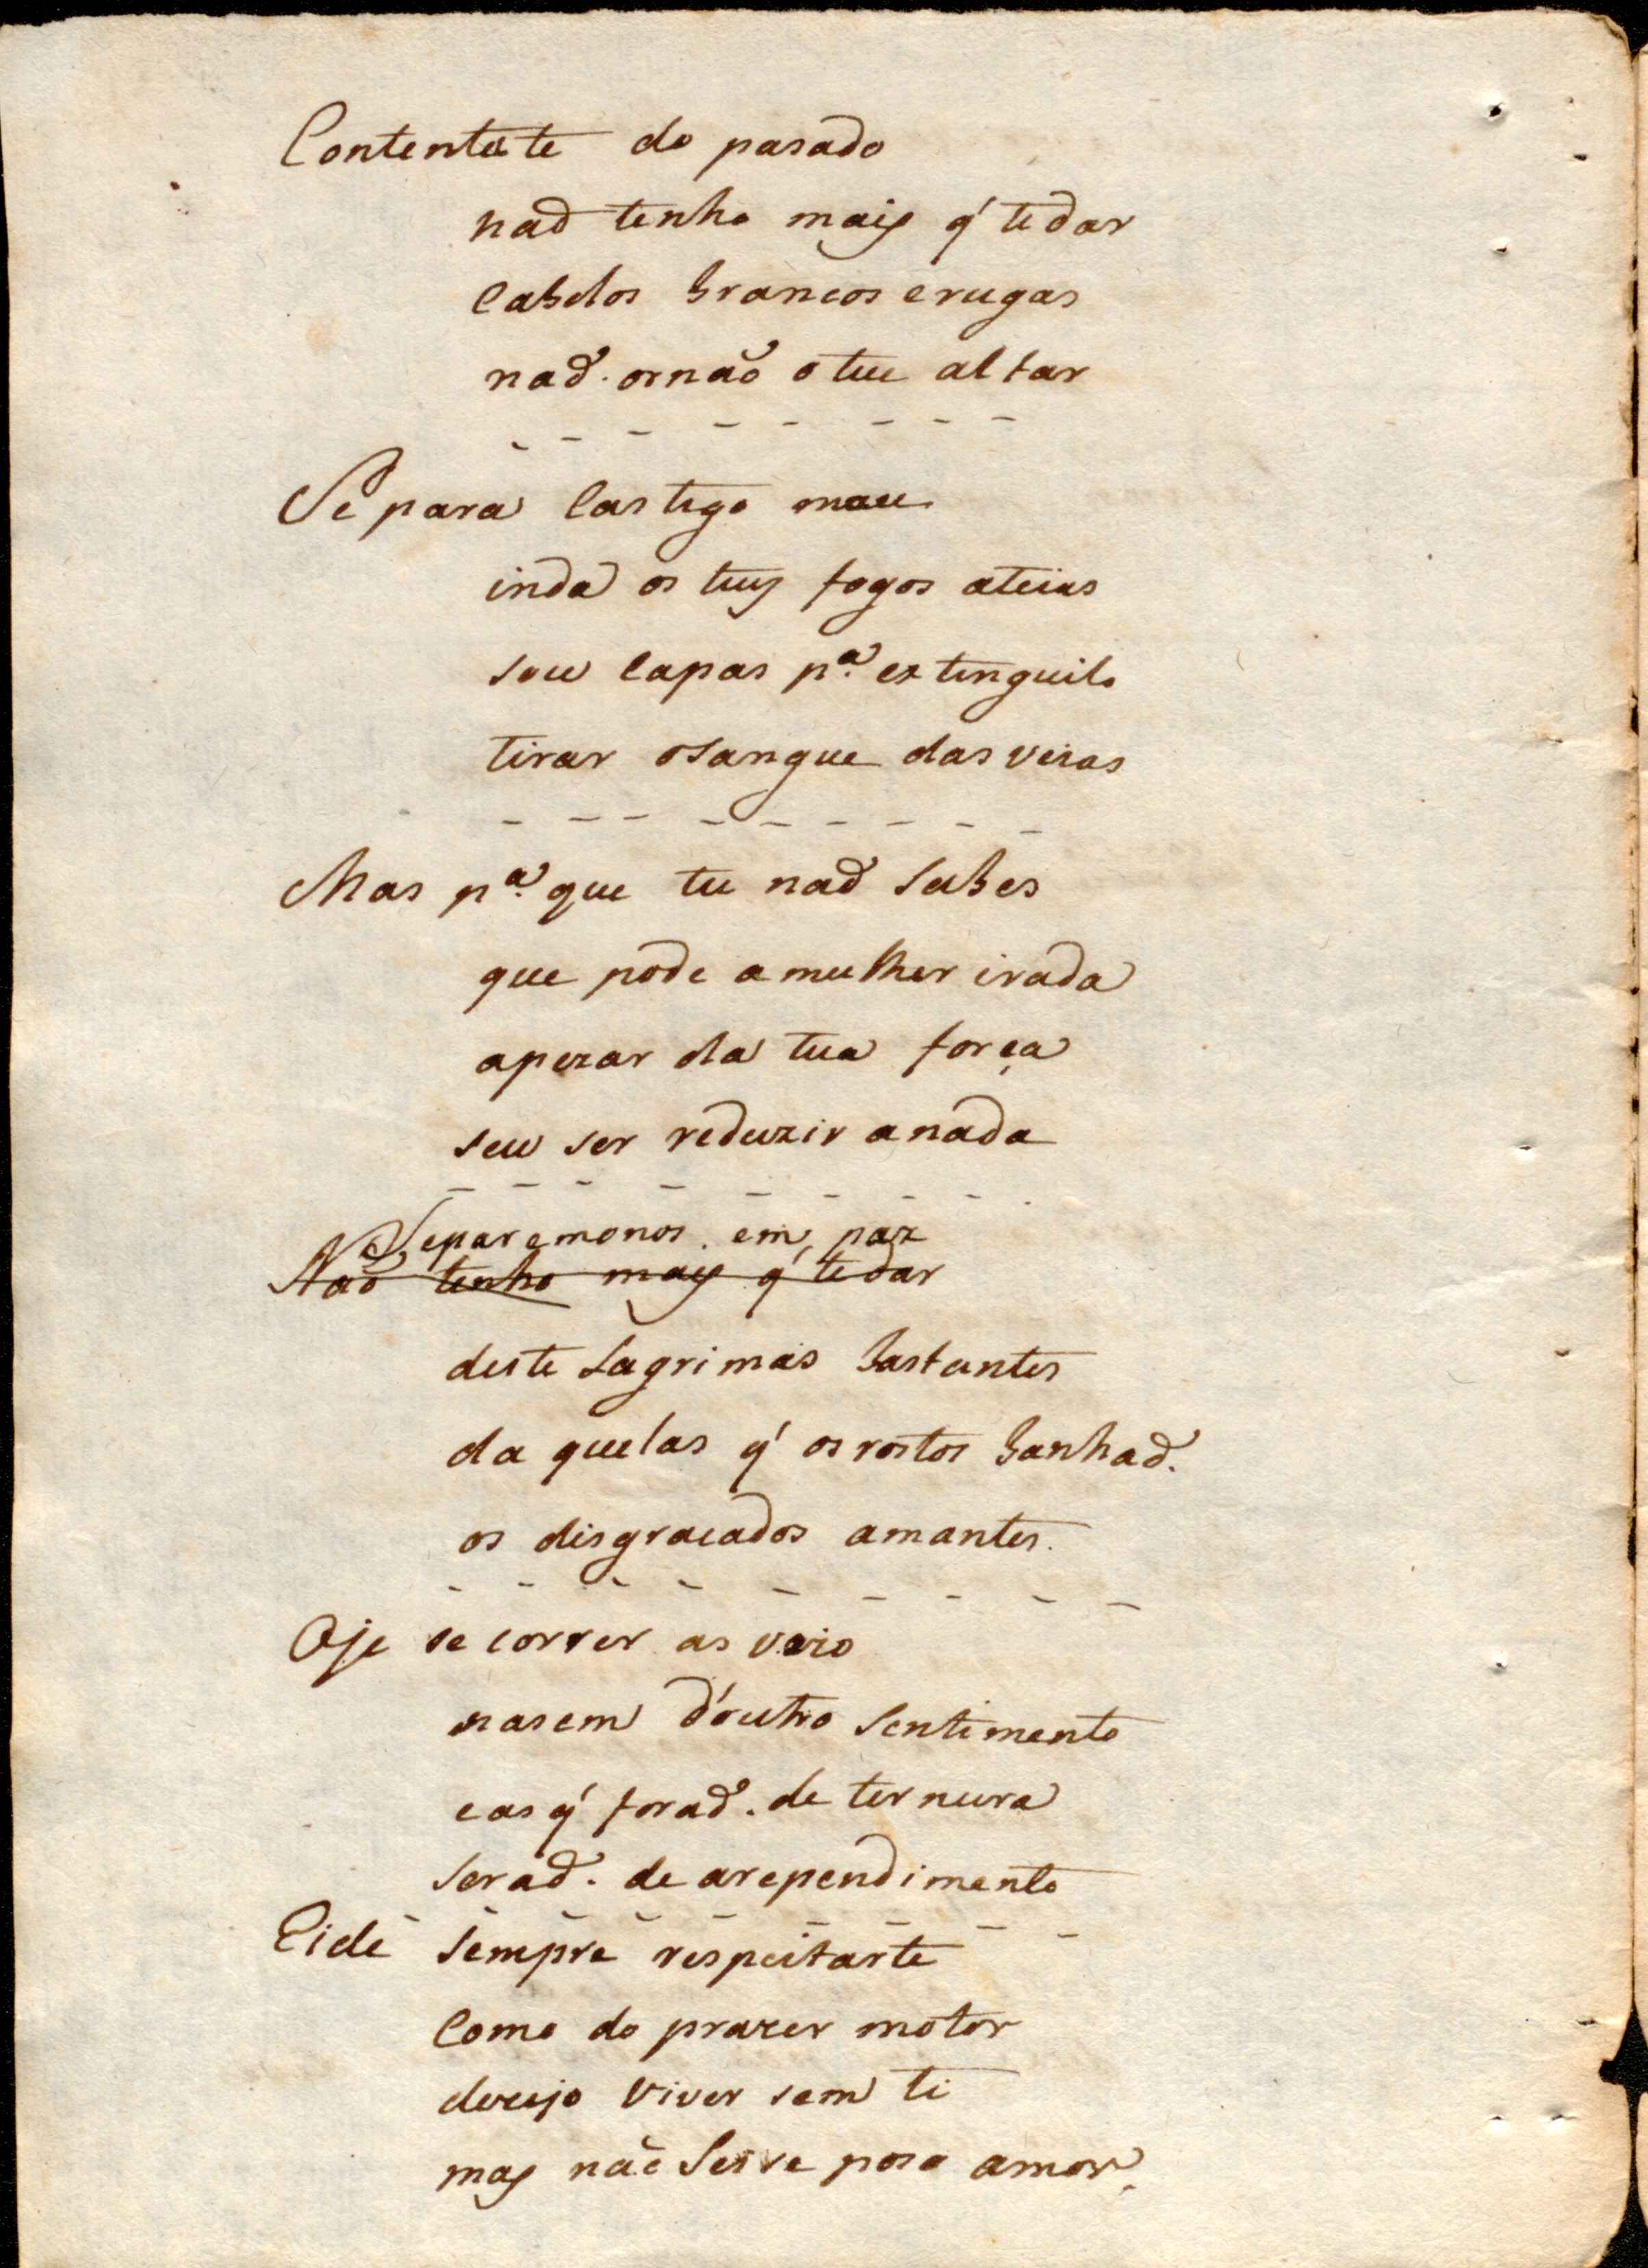 Contentate do pasado
naõ tenho mais q' tedar
Cabelos brancos erugas
naõ ornaõ o teu altar
Se para Castigo meu
inda os teus fogos ateias
sou Capas pª extinguilo
tirar osangue das veias
Mas pª que tu naõ Sabes
que póde amulher irada
apezar da tua força
seu ser reduzir anada
Separemonos em, paz
Naõ tenho mais q' tedar
deite Lagrimas bastantes
da quelas q' os rostos banhaõ.
os disgracados amantes.
Oje se correr as veio
nasem d'outro Sentimento
eas q' foraõ. de ternura
Seraõ. de arependimento
Eide Sempre respeitarte
Como do prazer motor
dezejo viver sem ti
mas naõ Seive poso amor.